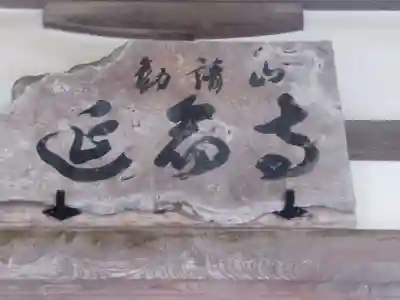 勧請山
延命寺